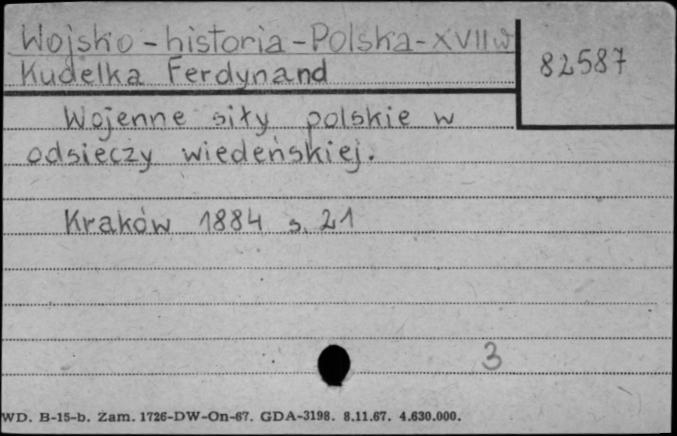 Wojsko - historia - Polska - XVII w
82587
Kudelka Ferdynand
Wojenne siły polskie w
odsieczy wiedeńskiej.
Kraków 1884 s. 21
3
WD. B-15-b. Zam. 1726-DW-On-67. GDA-3198. 8.11.67. 4.630.000.